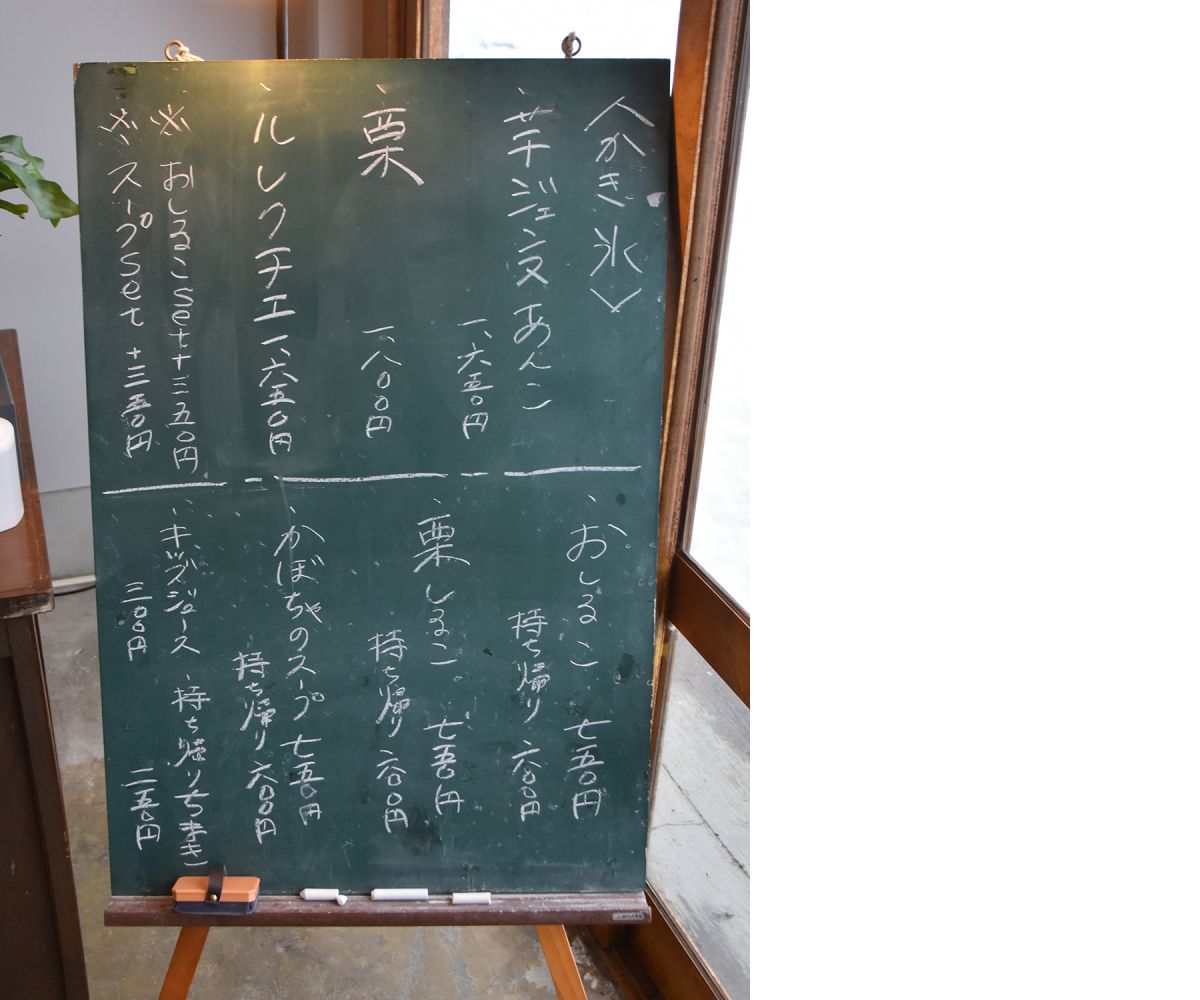 〈かき氷〉
、芋ジェンヌあんこ
一、六五〇円
、栗
一、八〇〇円
、ルレクチエ 一、六五〇円
※ おしるこset+三五〇円
※ スープset +三五〇円
、おしるこ 七五〇円
持ち帰り 六〇〇円
、栗しるこ 七五〇円
持ち帰り 六〇〇円
、かぼちゃのスープ 七五〇円
持ち帰り 六〇〇円
、キッズジュース
三〇〇円
、持ち帰りちまき
二五〇円